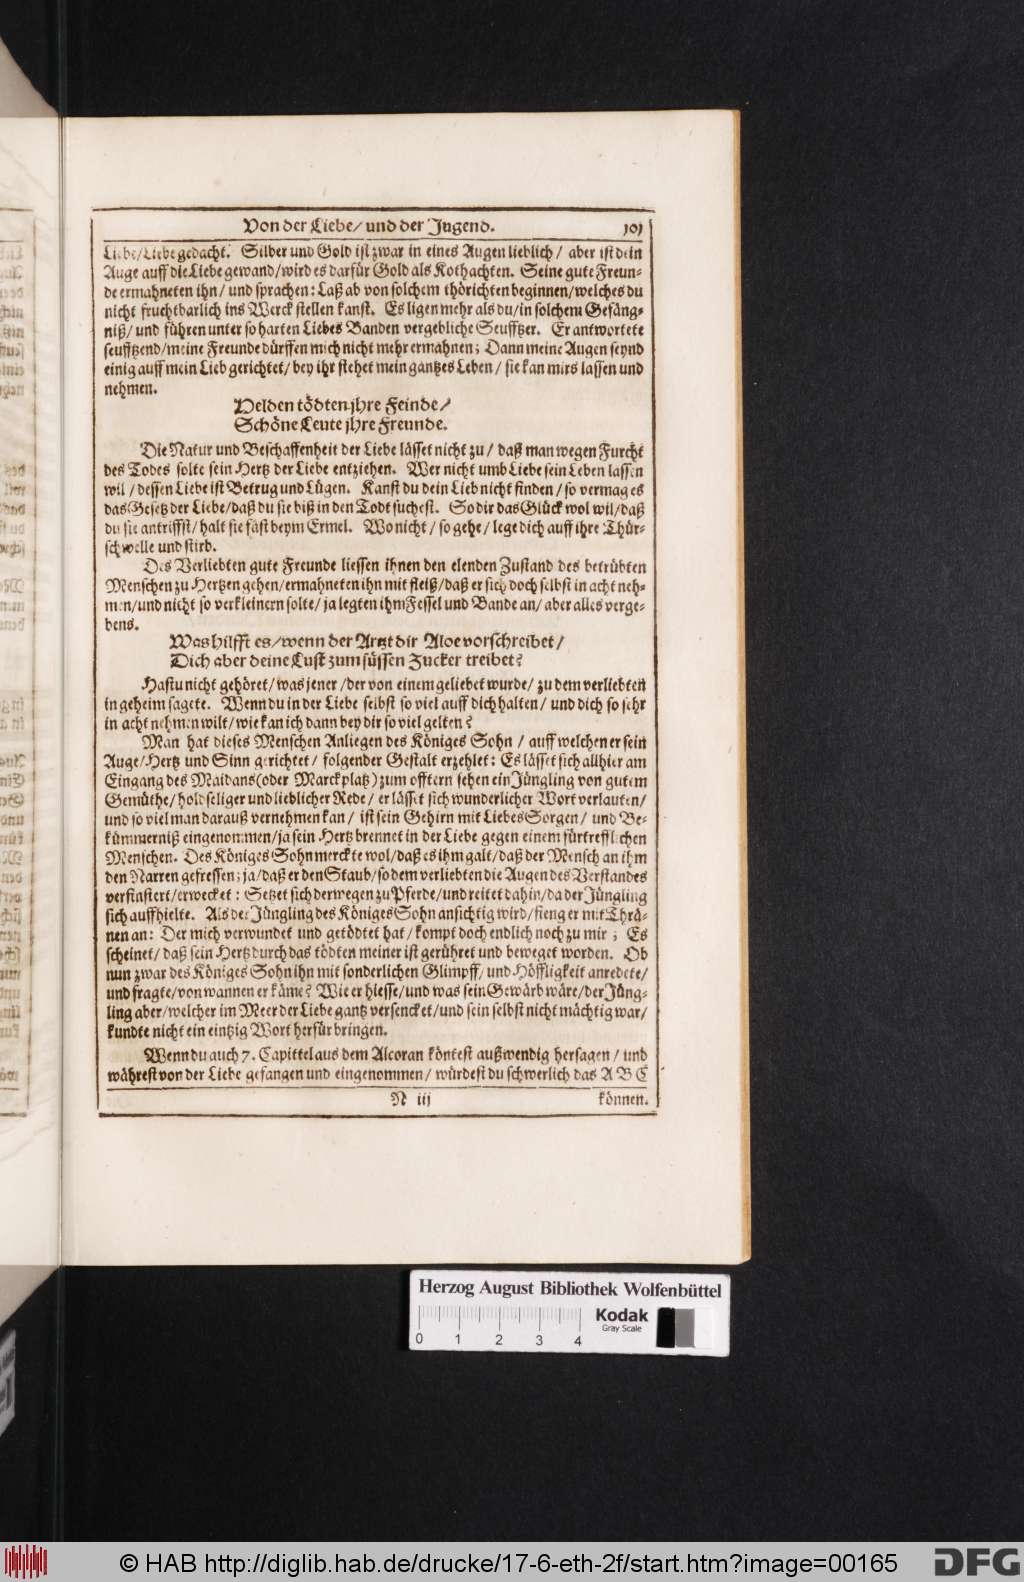 Von der Liebe/ und der Jugend. 101
Liebe/Liebe gedacht. Silber und Gold ist zwar in eines Augen lieblich/ aber ist dein
Auge auff die Liebe gewand/wird es darfür Gold als Koth achten. Seine gute Freun-
de ermahneten ihn/ und sprachen: Laß ab von solchem thörichten beginnen/welches du
nicht fruchtbarlich ins Werck stellen kanst. Es ligen mehr als du/in solchem Gefäng-
niß/ und führen unter so harten Liebes Banden vergebliche Seufftzer. Er antwortete
seufftzend/meine Freunde dürffen mich nicht mehr ermahnen; Dann meine Augen seynd
einig auff mein Lieb gerichtet/ bey ihr stehet mein gantzes Leben/ sie kan mirs lassen und
nehmen.
Helden tödten jhre Feinde/
Schöne Leute jhre Freunde.
Die Natur und Beschaffenheit der Liebe lässet nicht zu/ daß man wegen Furcht
des Todes solte sein Hertz der Liebe entziehen. Wer nicht umb Liebe sein Leben lassen
wil/ dessen Liebe ist Betrug und Lügen. Kanst du dein Lieb nicht finden/ so vermag es
das Gesetz der Liebe/daß du sie biß in den Todt suchest. So dir das Glück wol wil/daß
du sie antriffst/ halt sie fäst beym Ermel. Wo nicht/ so gehe/ lege dich auff ihre Thür-
schwelle und stirb.
Des Verliebten gute Freunde liessen ihnen den elenden Zustand des betrübten
Menschen zu Hertzen gehen/ermahneten ihn mit fleiß/daß er sich doch selbst in acht neh-
men/und nicht so verkleinern solte/ ja legten ihm Fessel und Bande an/ aber alles verge-
bens.
Was hilfft es/wenn der Artzt dir Aloe vorschreibet/
Dich aber deine Lust zum süssen Zucker treibet?
Hastu nicht gehöret/was jener/der von einem geliebet wurde/ zu dem verliebten
in geheim sagete. Wenn du in der Liebe selbst so viel auff dich halten/ und dich so sehr
in acht nehmen wilt/wie kan ich dann bey dir so viel gelten?
Man hat dieses Menschen Anliegen des Königes Sohn/ auff welchen er sein
Auge/Hertz und Sinn gerichtet/ folgender Gestalt erzehlet: Es lässet sich allhier am
Eingang des Maidans (oder Marckplatz) zum offtern sehen ein Jüngling von gutem
Gemüthe/ holdseliger und lieblicher Rede/ er lässet sich wunderlicher Wort verlauten/
und so viel man darauß vernehmen kan/ ist sein Gehirn mit Liebes Sorgen/ und Be-
kümmerniß eingenommen/ja sein Hertz brennet in der Liebe gegen einem fürtrefflichen
Menschen. Des Königes Sohn merckte wol/daß es ihm galt/daß der Mensch an ihm
den Narren gefressen; ja/daß er den Staub/so dem verliebten die Augen des Verstandes
verfinstert/erwecket: Setzet sich derwegen zu Pferde/und reitet dahin/da der Jüngling
sich auffhielte. Als der Jüngling des Königes Sohn ansichtig wird/fieng er mit Thrä-
nen an: Der mich verwundet und getödtet hat/ kompt doch endlich noch zu mir; Es
scheinet/ daß sein Hertz durch das tödten meiner ist gerühret und beweget worden. Ob
nun zwar des Königes Sohn ihn mit sonderlichen Glimpff/ und Höffligkeit anredete/
und fragte/von wannen er käme? Wie er hiesse/und was sein Gewärb wäre/der Jüng-
ling aber/welcher im Meer der Liebe gantz versencket/und sein selbst nicht mächtig war/
kundte nicht ein eintzig Wort herfür bringen.
Wenn du auch 7. Capittel aus dem Alcoran köntest außwendig hersagen/ und
währest von der Liebe gefangen und eingenommen/ würdest du schwerlich das A B C
N iij können.
Herzog August Bibliothek Wolfenbüttel
Kodak
Gray Scale
0 1 2 3 4
© HAB http://diglib.hab.de/drucke/17-6-eth-2f/start.htm?image=00165
DFG